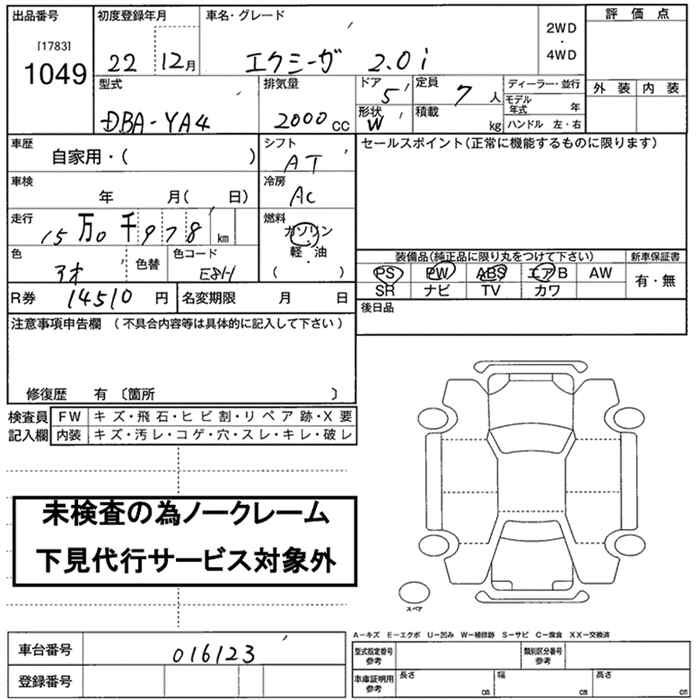 出品番号 初度登録年月 車名・グレード 評価点
[1783]
1049
22 12月 エクシーガ 2.0i
2WD
・
4WD
型式 排気量 ドア 5 定員 7 人 ディーラー・並行 外装 内装
DBA-YA4 2000cc 形状 W 積載 kg モデル年式 年
ハンドル 左・右
車歴 自家用・( ) シフト AT セールスポイント(正常に機能するものに限ります)
車検 年 月( 日) 冷房 AC
走行 15万0千978km 燃料 ガソリン
軽・油
( ・ )
装備品(純正品に限り丸をつけて下さい) 新車保証書
色 色替 色コード PS PW ABS エアB AW 有・無
SR ナビ TV カワ
R券 14510円 名変期限 月 日 後日品
注意事項申告欄 (不具合内容等は具体的に記入して下さい)
修復歴 有 〔箇所 〕
検査員 FW キズ・飛石・ヒビ割・リペア跡・X要
記入欄 内装 キズ・汚レ・コゲ・穴・スレ・キレ・破レ
未検査の為ノークレーム
下見代行サービス対象外
スペア
A−キズ E−エクボ U−凹み W−補修跡 S−サビ C−腐食 XX−交換済
車台番号 016123 型式指定番号 参考 類別区分番号 参考
登録番号 車庫証明用 参考 長さ cm 幅 cm 高さ cm